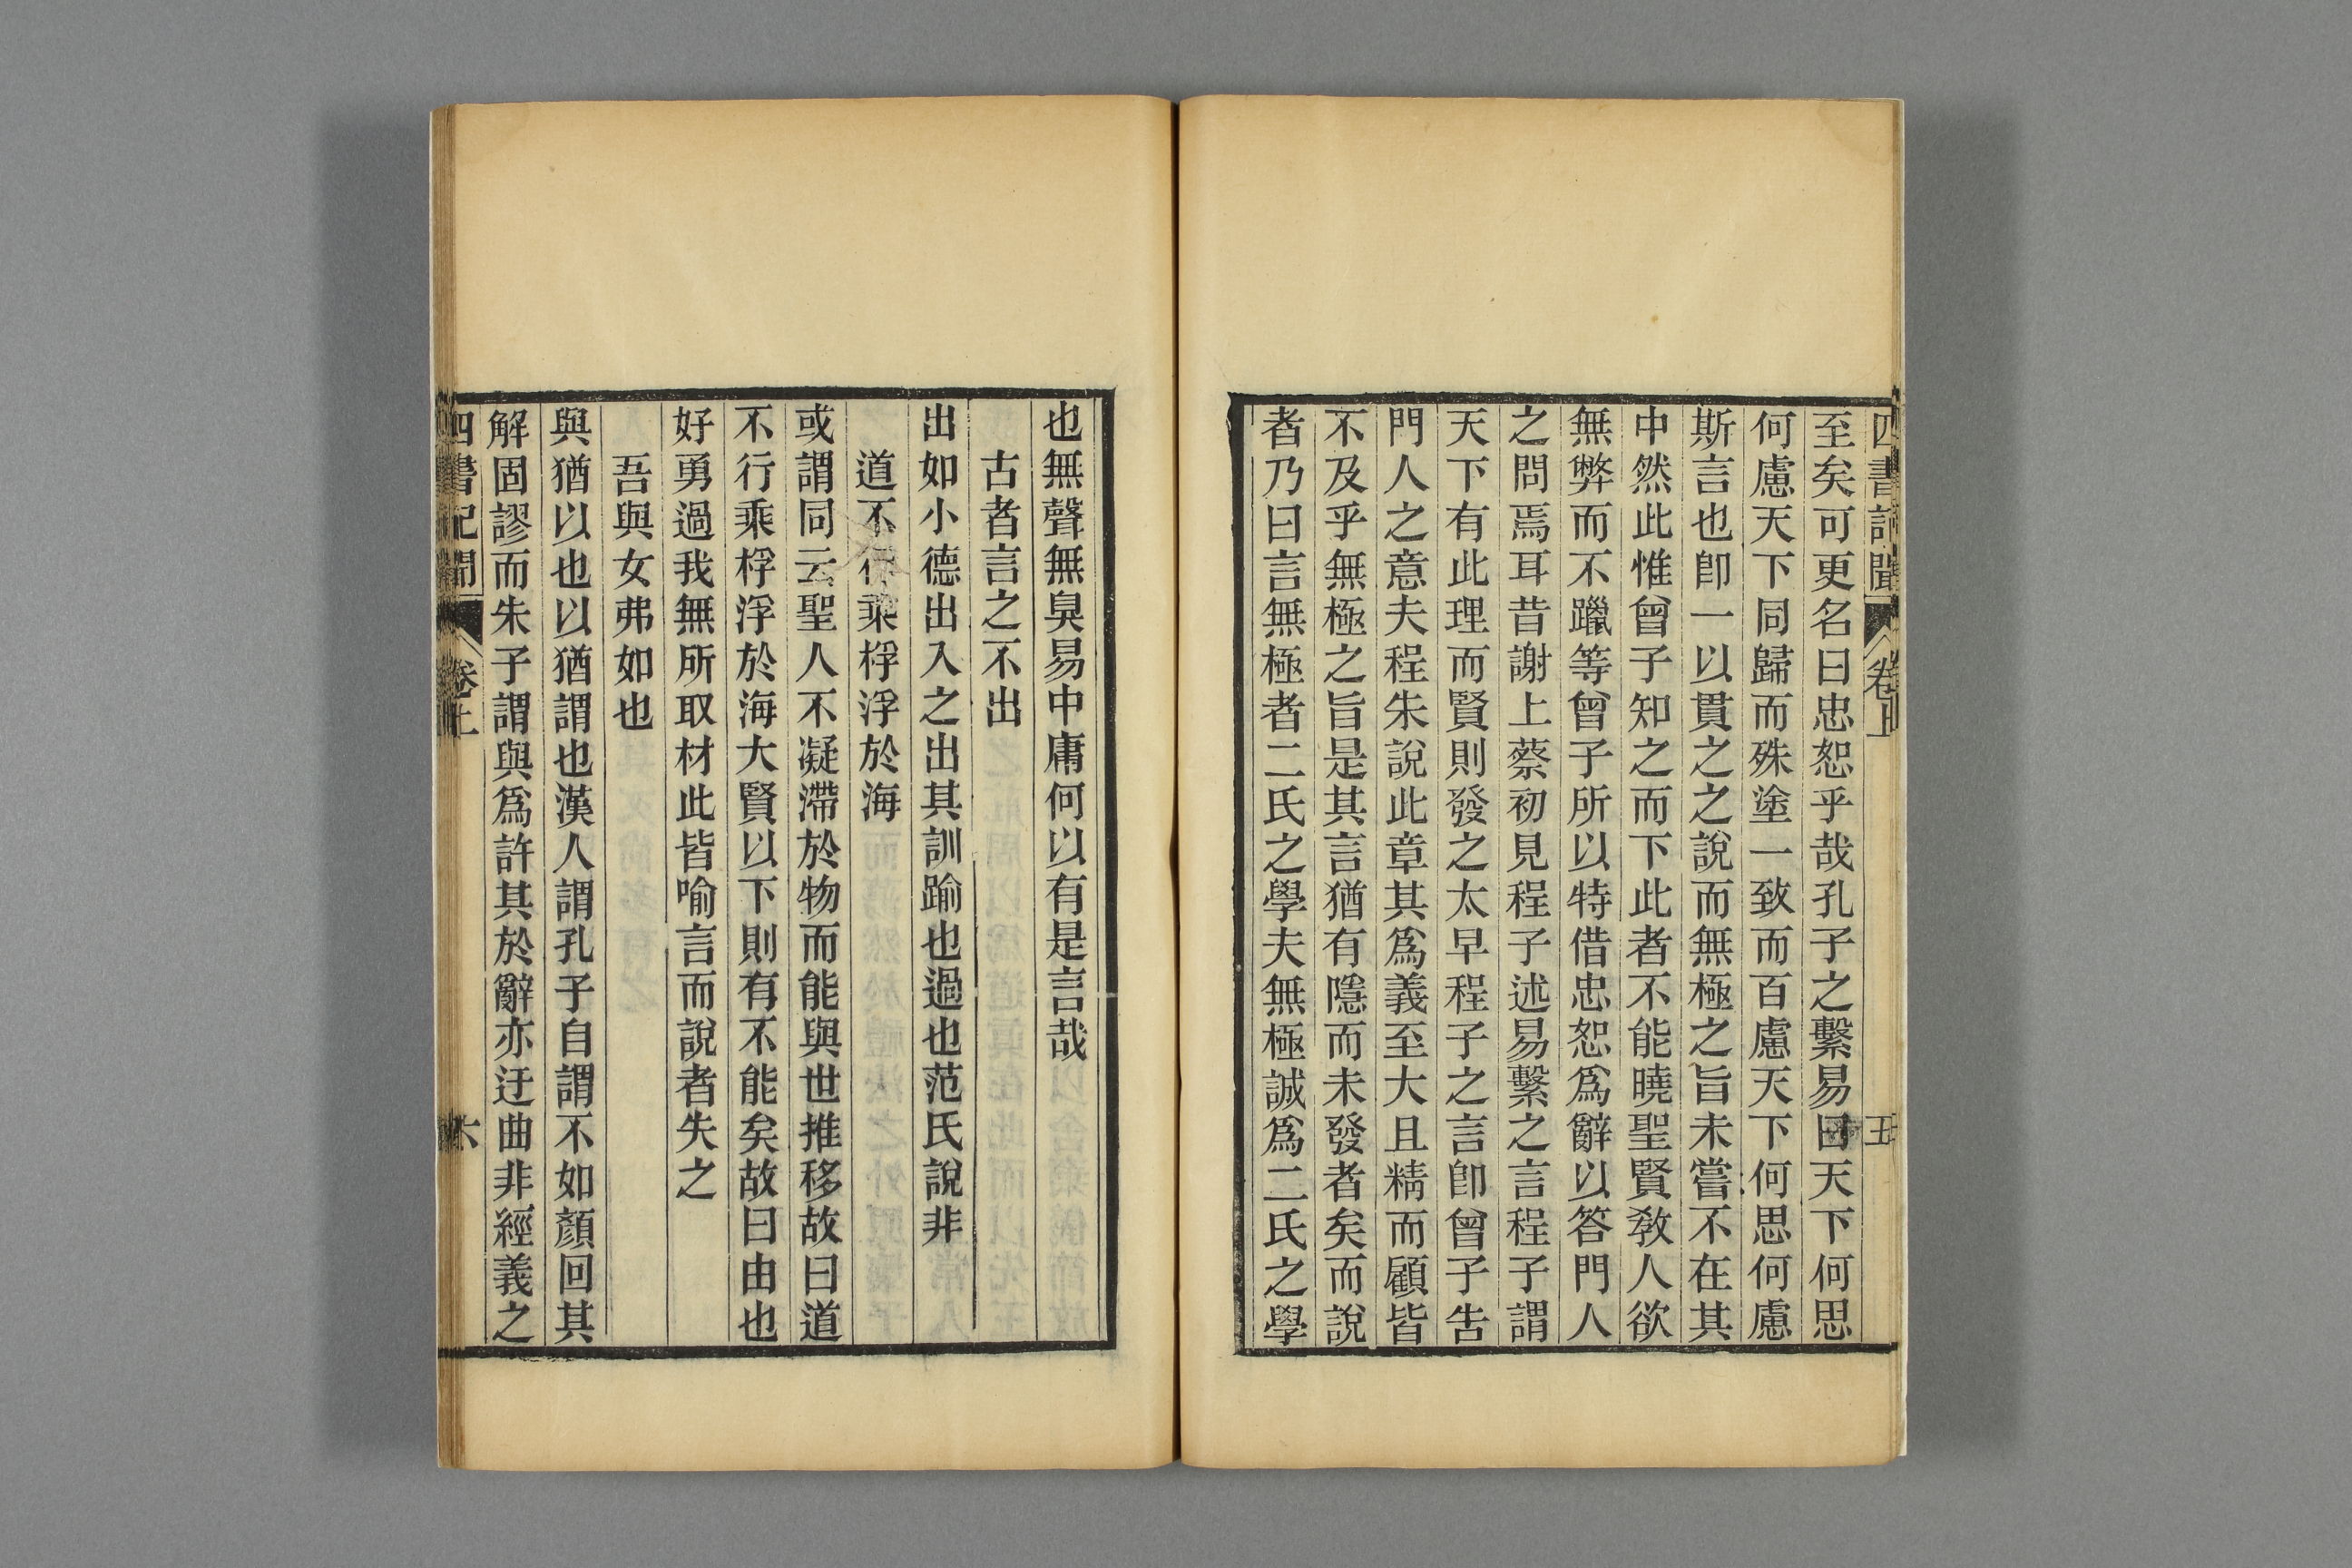 四書記聞 卷上 五
至矣可更名曰忠恕乎哉孔子之繫易曰天下何思
何慮天下同歸而殊塗一致而百慮天下何思何慮
斯言也卽一以貫之之說而無極之旨未嘗不在其
中然此惟曾子知之而下此者不能曉聖賢敎人欲
無弊而不躐等曾子所以特借忠恕爲辭以答門人
之問焉耳昔謝上蔡初見程子述易繫之言程子謂
天下有此理而賢則發之太早程子之言卽曾子告
門人之意夫程朱說此章其爲義至大且精而顧皆
不及乎無極之旨是其言猶有隱而未發者矣而說
者乃曰言無極者二氏之學夫無極誠爲二氏之學
也無聲無臭易中庸何以有是言哉
古者言之不出
出如小德出入之出其訓踰也過也范氏說非
道不行乘桴浮於海
或謂同云聖人不凝滯於物而能與世推移故曰道
不行乘桴浮於海大賢以下則有不能矣故曰由也
好勇過我無所取材此皆喻言而說者失之
吾與女弗如也
與猶以也以猶謂也漢人謂孔子自謂不如顏回其
解固謬而朱子謂與爲許其於辭亦迂曲非經義之
四書記聞 卷上 六